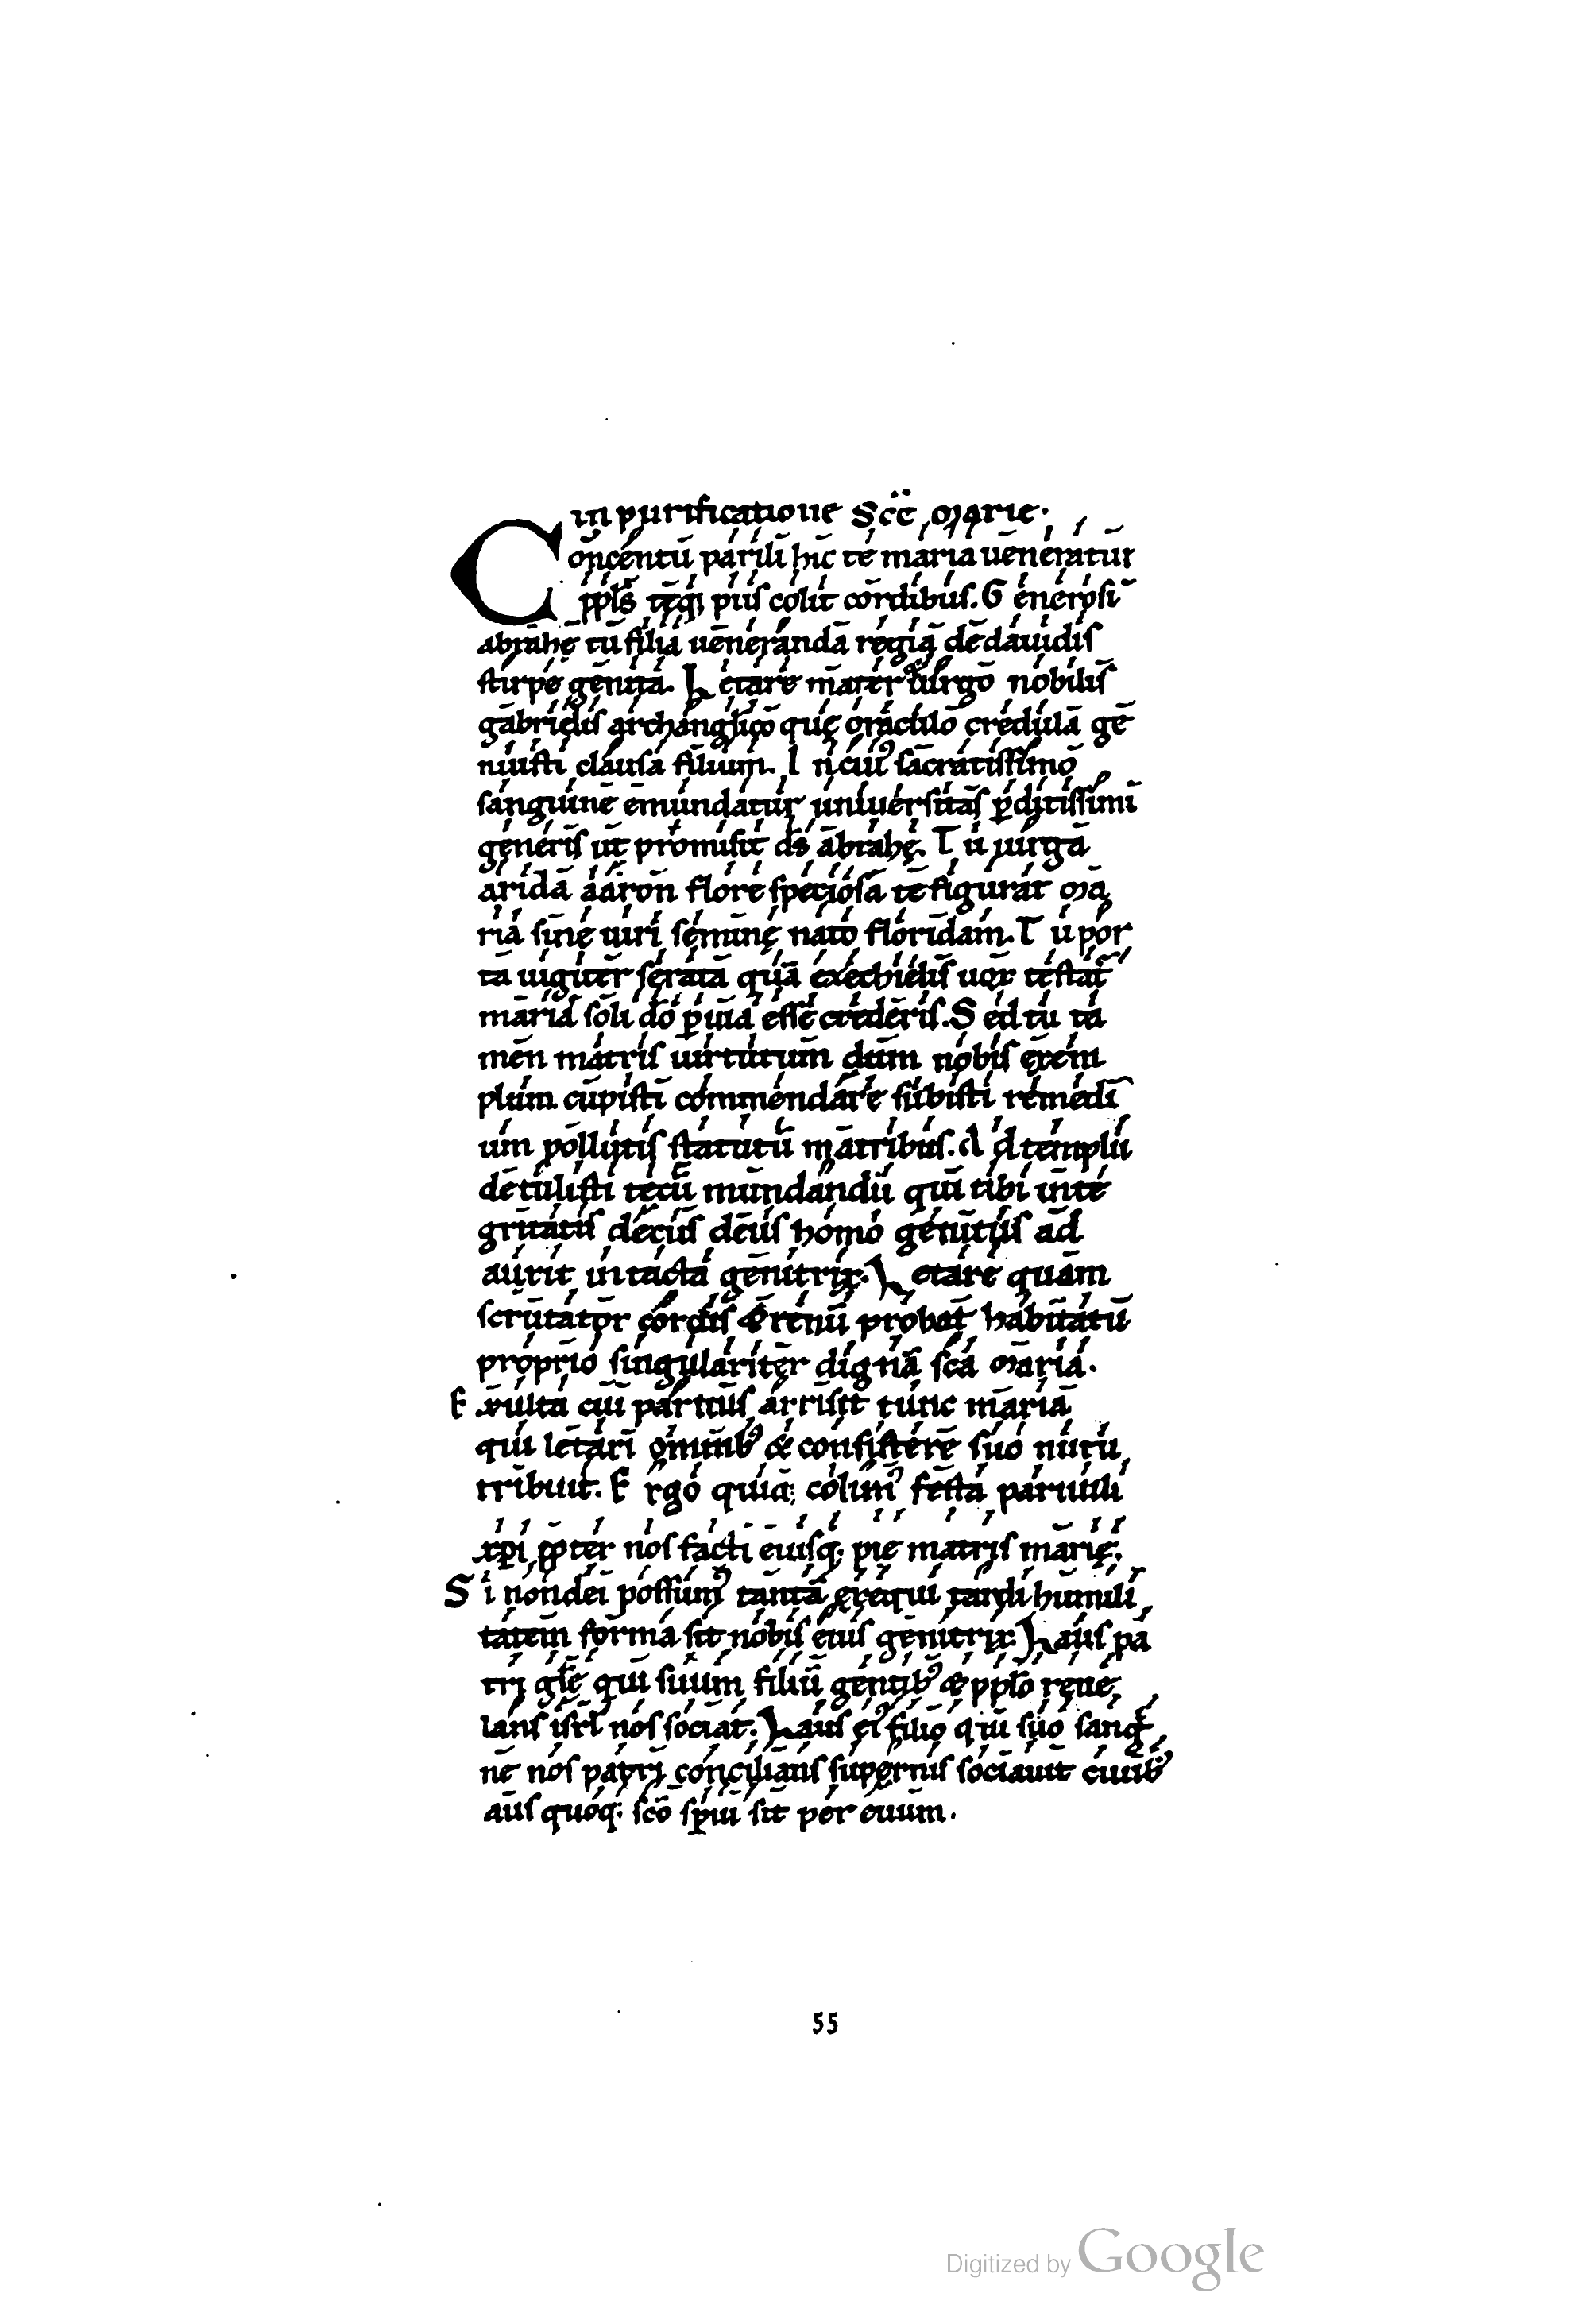 in purificatione Scē marie.
Concentu parili hic te maria ueneratur
ppls̄ teq; piis colit cordibus. Generosi
abrahę tu filia ueneranda regia de dauidis
stirpe genita. Letare mater & uirgo nobilis
gabrielis archanglico quę oraculo credula ge
nuisti clausa filium. In cui᾽ sacratissimo
sanguine emundatur uniuersitas pditissimi
generis ut promisit ds̄ abrahę. Tu uirga
arida aaron flore speciosa te figurat ma
ria sine uiri semine nato floridam. Tu por
ta iugiter serata quā ezechielis uox testat᾽
maria soli dō puia esse crederis. Sed tu ta
men matris uirtutum dum nobis exem
plum cupisti commendare subisti remedi
um pollutis statutū matribus. Ad templū
detulisti tecū mundandū qui tibi inte
gritatis decus deus homo genitus ad
auxit intacta genitrix. Letare quam
scrutator cordis & renū probat habitatu
proprio singulariter dignā sc̄a maria.
Exulta cui paruus arrisit tunc maria
qui letari omnib᾽ & consistere suo nutu
tribuit. Ergo quiq; colim᾽ festa paruuli
xp̄i ppter nos facti eiusq; pie matris marię.
Si non dei possum᾽ tantā exequi tardi humili
tatem forma sit nobis eius genitrix. Laus pa
tri glę qui suum filiū gentib᾽ & pplo reue
lans isrl̄ nos sociat. Laus ei᾽ filio qui suo sangi
ne nos patri concilians supernis sociauit ciuib᾽
aus quoq; sc̄o sp̄iu sit per euum.
55
Digitized by Google